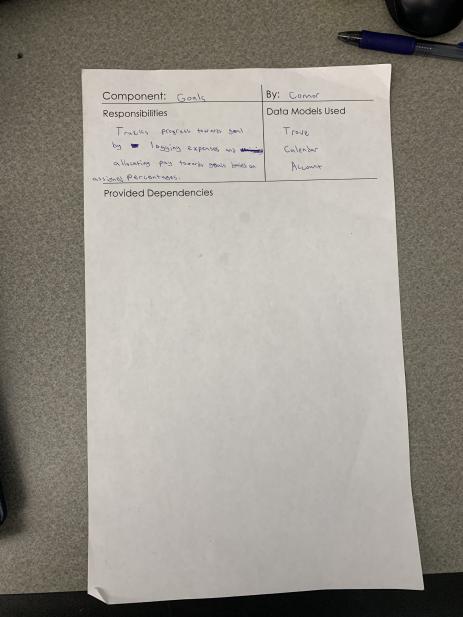 Component: Goals
By: Connor
Responsibilities
Data Models Used
Tracks progress towards goal
by logging expenses and
allocating pay towards goals based on
assigned percentages.
Trove
Calendar
Account
Provided Dependencies